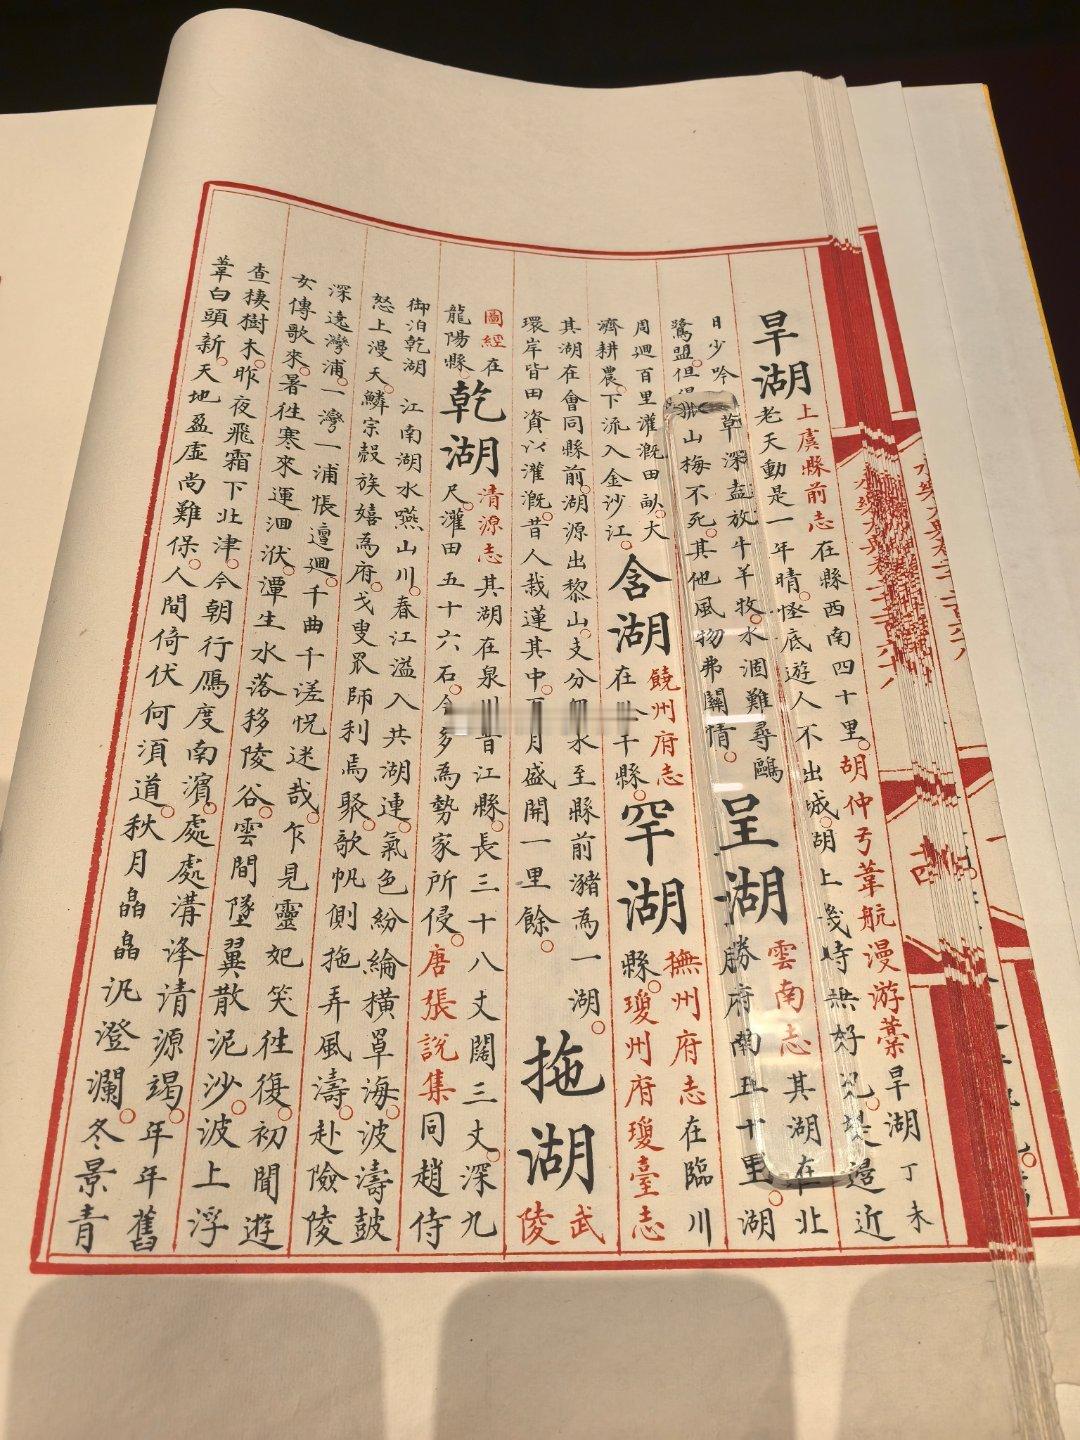 旱湖
上虞縣前志在縣西南四十里。胡仲弓葦航漫游藁旱湖 丁未
老天動是一年晴。怪底遊人不出城。湖上幾時無好況。堤邊近
日少吟 草深盡放牛羊牧。水涸難尋鷗
鷺盟。但得孤山梅不死。其他風物弗關情。
呈湖
雲南志其湖在北
勝府南五十里。湖
周迴百里灌溉田畝。大
濟耕農。下流入金沙江。
含湖
饒州府志
在餘干縣。
罕湖
撫州府志在臨川
縣。瓊州府瓊臺志
其湖在會同縣前。湖源出黎山。支分細水至縣前瀦為一湖。
環岸皆田資以灌溉。昔人栽蓮其中。夏月盛開一里餘。
拖湖
武
陵
圖經在
龍陽縣
乾湖
清源志其湖在泉州晉江縣。長三十八丈闊三丈。深九
尺。灌田五十六石。今多為勢家所侵。唐張說集同趙侍
御泊乾湖 江南湖水嚥山川。春江溢入共湖連。氣色紛綸橫罩海。波濤鼓
怒上漫天。鱗宗殼族嬉為府。弋叟罛師利焉聚。欹帆側拖弄風濤。赴險陵
深遶灣浦。一灣一浦悵邅迴。千曲千溠怳迷哉。乍見靈妃笑往復。初聞遊
女傳歌來。暑往寒來運洄洑。潭生水落移陵谷。雲間墜翼散泥沙。波上浮
查棲樹木。昨夜飛霜下北津。今朝行鴈度南濱。處處溝洚清源竭。年年舊
葦白頭新。天地盈虛尚難保。人間倚伏何須道。秋月晶晶汎澄瀾。冬景青